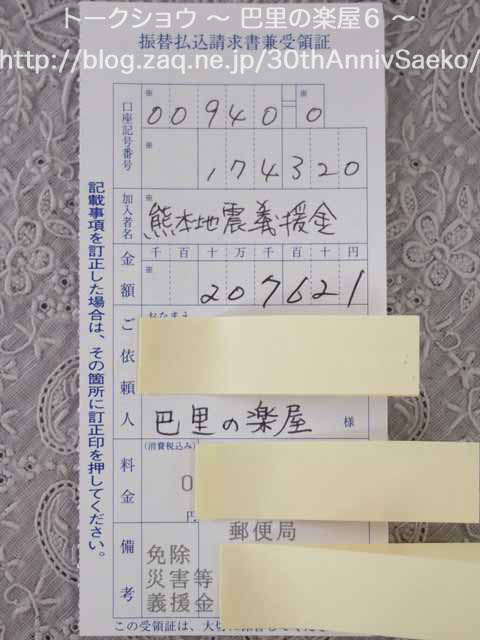 トークショウ ～ 巴里の楽屋6 ～
振替払込請求書兼受領証
http://blog.zaq.ne.jp/30thAnnivSaeko/
口座記号番号
※
00940 0
※
174320
加入者名
※
熊本地震義援金
金額
千 百 十 万 千 百 十 円
※
207621
ご依頼人
おなまえ
巴里の楽屋 様
料金
(消費税込み)
0
円
備考
郵便局
免除
災害等
義援金
記載事項を訂正した場合は、その箇所に訂正印を押してください。
この受領証は、大